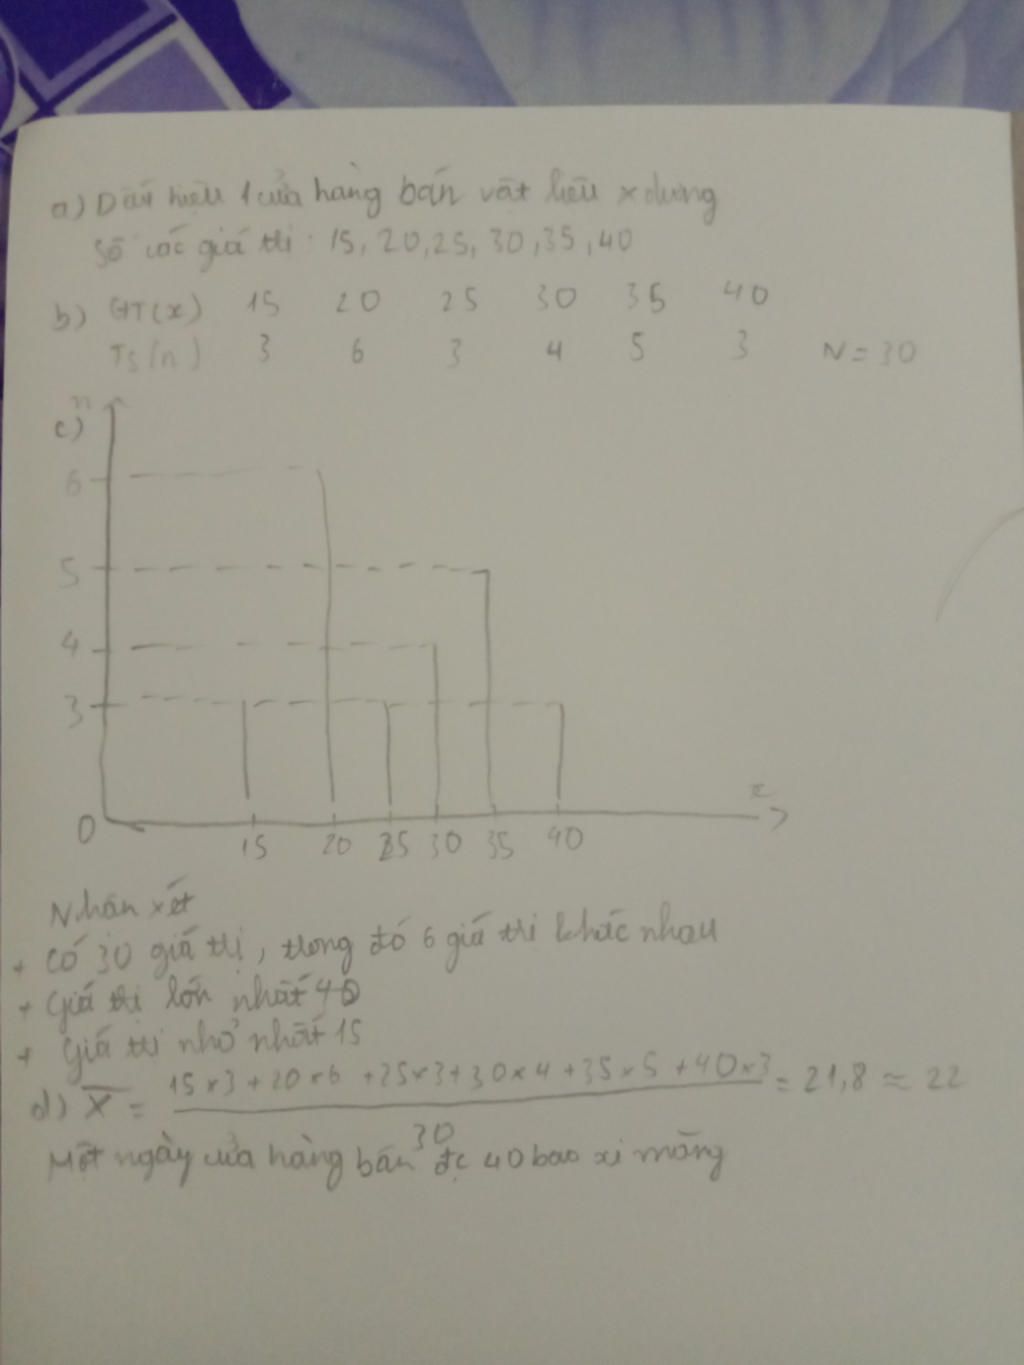 a) Dấu hiệu 1 cửa hàng bán vật liệu x dựng
Số các giá trị : 15, 20, 25, 30, 35, 40
b) GT(x) 15 20 25 30 35 40
TS(n) 3 6 3 4 5 3 N = 30
n
c)
6
5
4
3
x
0
15 20 25 30 35 40
Nhận xét
+ Có 30 giá trị, trong đó 6 giá trị khác nhau
+ Giá trị lớn nhất 40
+ Giá trị nhỏ nhất 15
d) X̄ = 15 x 3 + 20 x 6 + 25 x 3 + 30 x 4 + 35 x 5 + 40 x 3 = 21,8 ≈ 22
30
Một ngày cửa hàng bán đc 40 bao xi măng